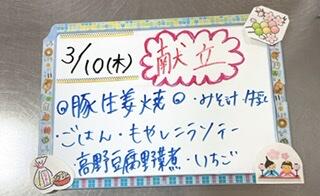 3/10(木) 献立
◎豚生姜焼◎・みそ汁・牛乳
・ごはん・もやしニラソテー
高野豆腐野菜煮・いちご